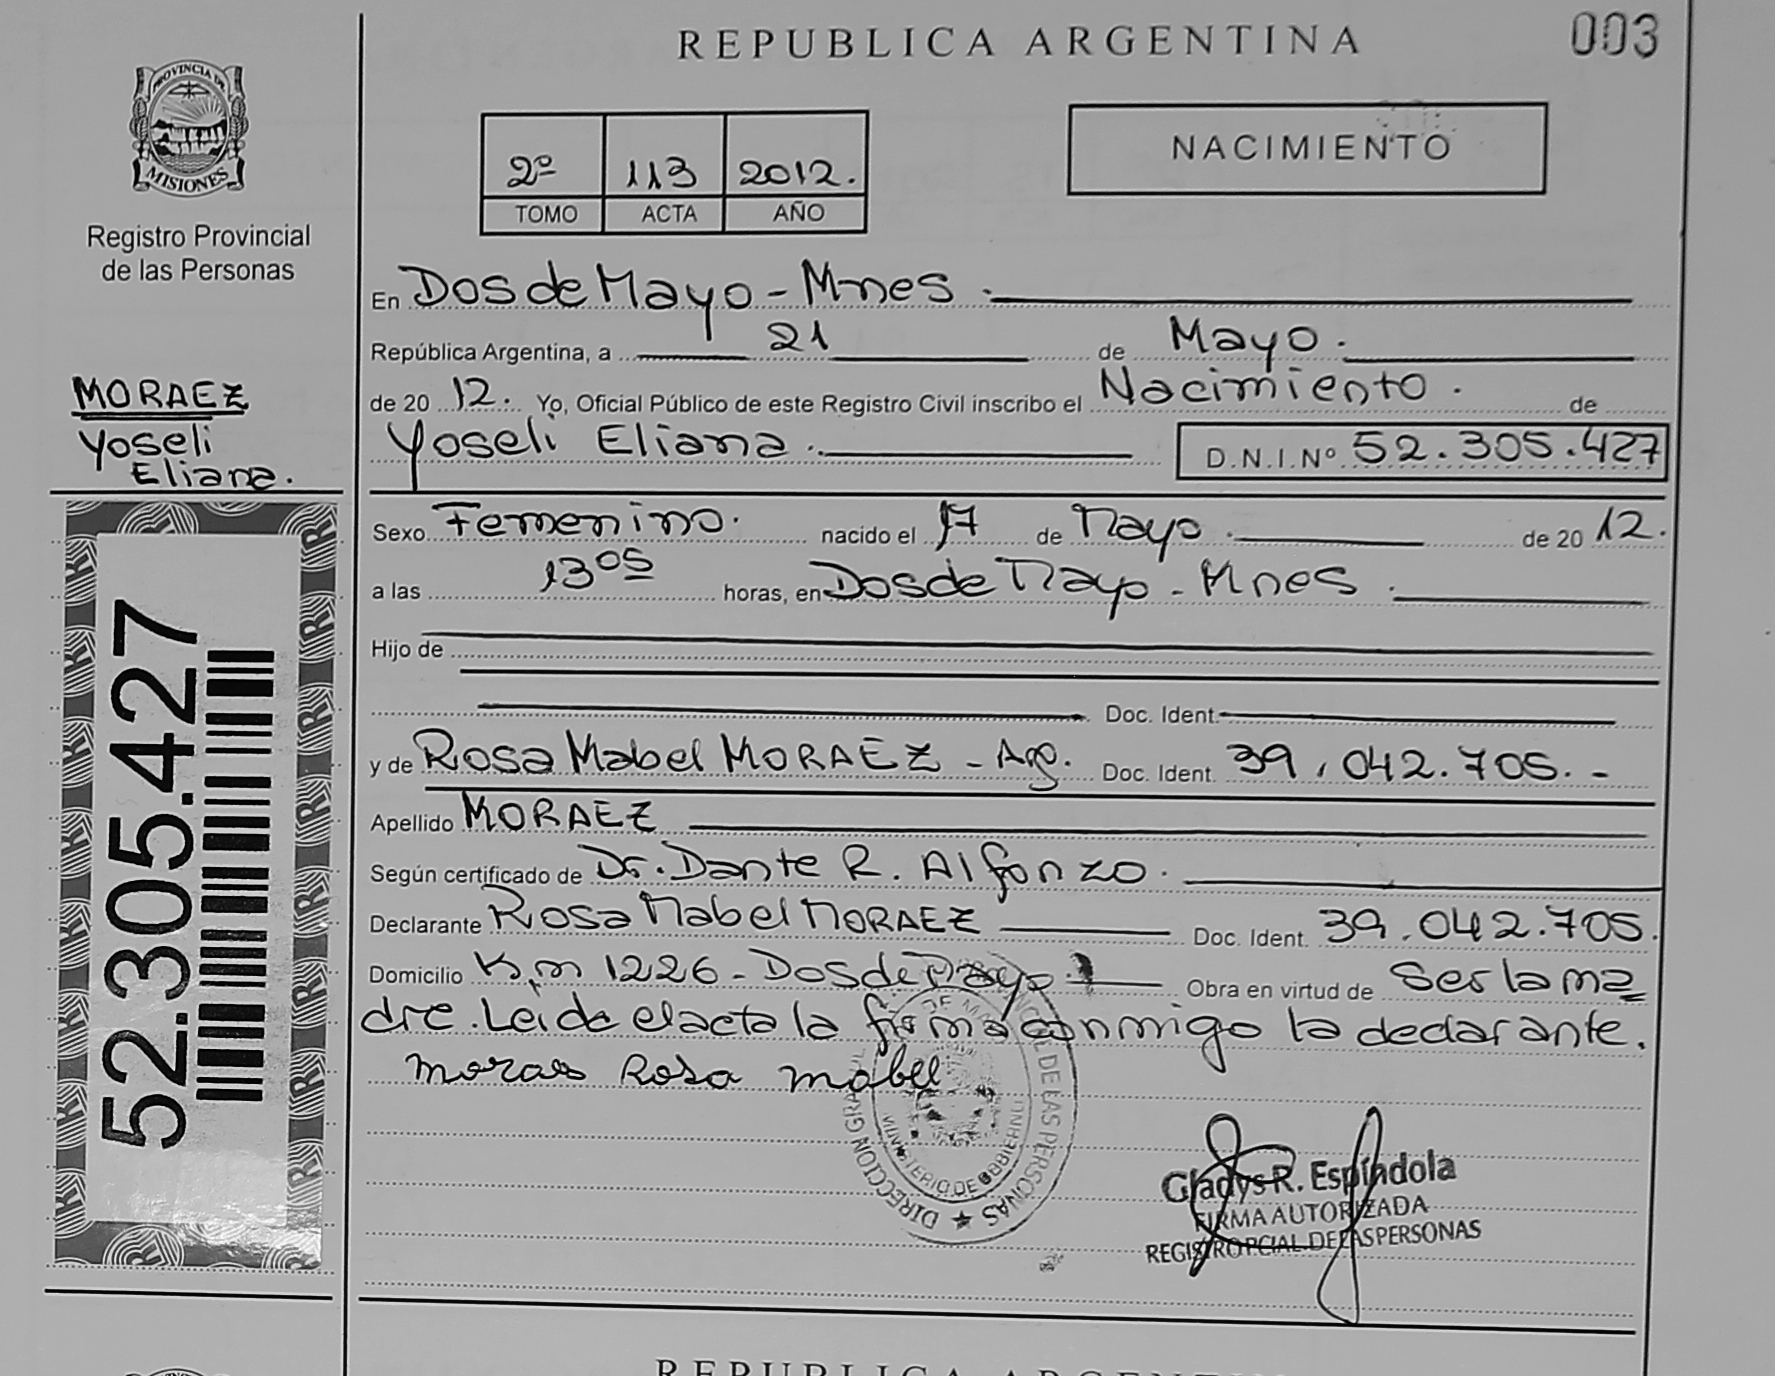 REPUBLICA ARGENTINA
003
PROVINCIA DE
MISIONES
Registro Provincial
de las Personas
2º 113 2012.
TOMO ACTA AÑO
NACIMIENTO
En Dos de Mayo - Mnes.
República Argentina, a 21 de Mayo.
de 20 12. Yo, Oficial Público de este Registro Civil inscribo el Nacimiento. de
Yoseli Eliana. D.N.I.Nº 52.305.427
MORAEZ
Yoseli
Eliana.
52.305.427
Sexo Femenino. nacido el 17 de Mayo. de 20 12.
a las 13 05 horas, en Dos de Mayo - Mnes.
Hijo de
Doc. Ident.
y de Rosa Mabel MORAEZ - Arg. Doc. Ident. 39.042.705.-
Apellido MORAEZ
Según certificado de Dr. Dante R. Alfonzo.
Declarante Rosa Mabel MORAEZ Doc. Ident. 39.042.705.
Domicilio Km 1226 - Dos de Mayo Obra en virtud de Ser la ma
dre. Leida el acta la firma conmigo la declarante.
Moraes Rosa Mabel
DIRECCION GRAL DE LAS PERSONAS
MINISTERIO DE GOBIERNO
Gladys R. Espíndola
FIRMA AUTORIZADA
REGISTRO PCIAL. DE LAS PERSONAS
REPUBLICA ARGENTINA